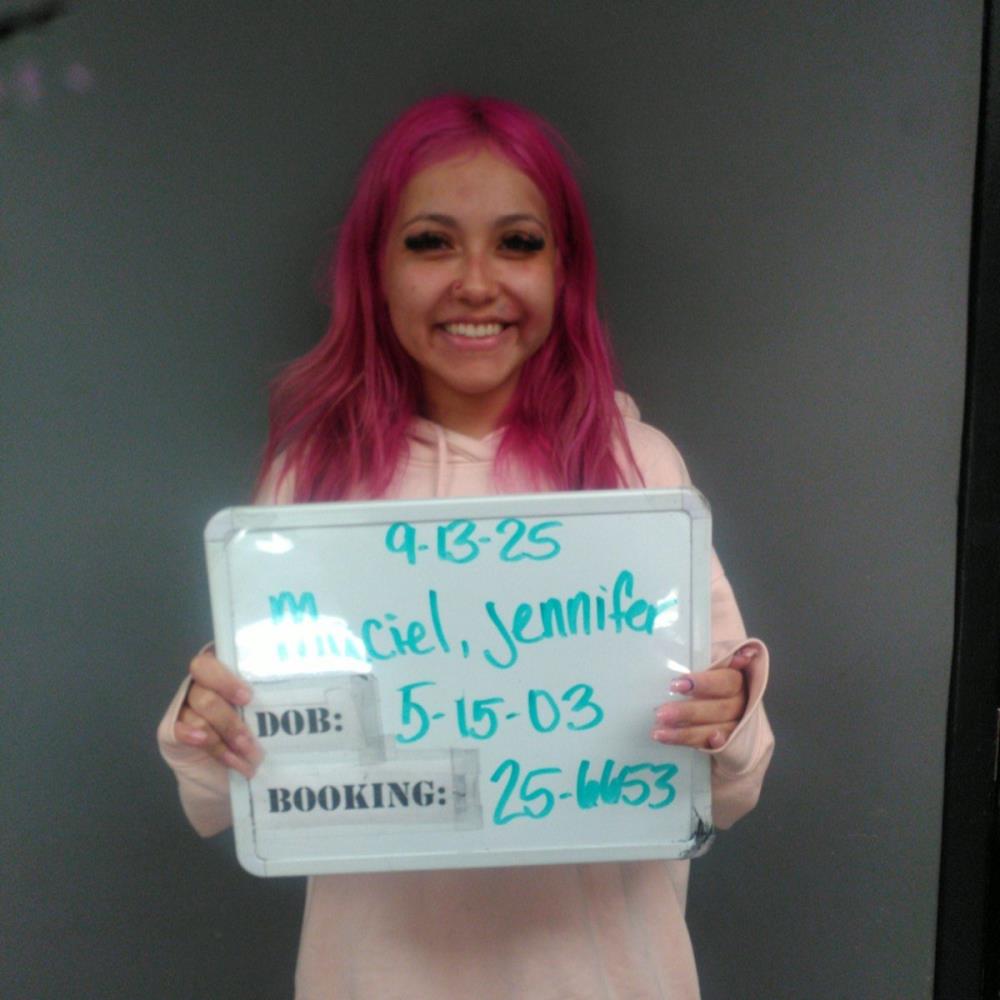 9-13-25
Maciel, Jennifer
DOB: 5-15-03
BOOKING: 25-6653